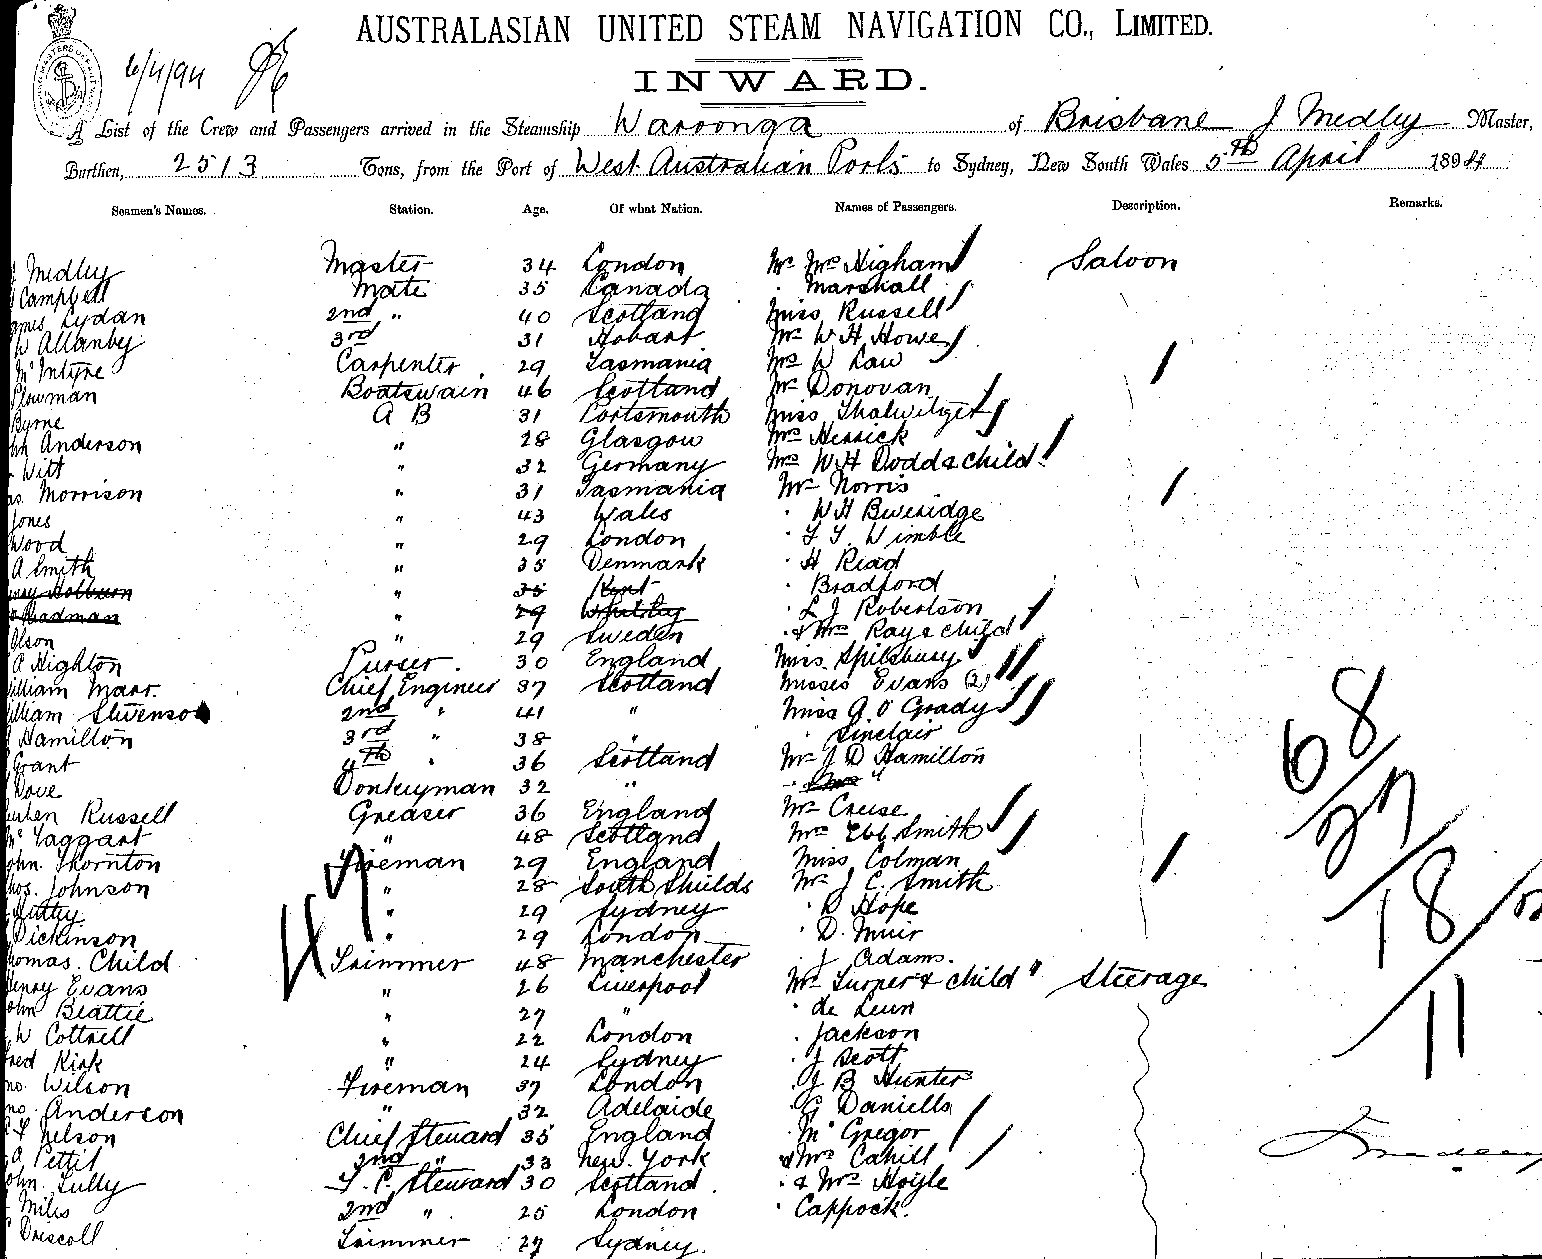 AUSTRALASIAN UNITED STEAM NAVIGATION CO., LIMITED.
6/4/94
INWARD.
A List of the Crew and Passengers arrived in the Steamship Waroonga of Brisbane J Medley Master,
Burthen, 2513 Tons, from the Port of West Australian Ports to Sydney, New South Wales 5TH April 1894
Seamen's Names. Station. Age. Of what Nation. Names of Passengers. Description. Remarks.
Medley Master 34 London Mr Mrs Higham Saloon
Campbell Mate 35 Canada " Marshall
Lydan 2nd " 40 Scotland Miss Russell
W Allanby 3rd 31 Hobart Mr W H Howe
McIntyre Carpenter 29 Tasmania Mrs W Law
Plowman Boatswain 46 Scotland Mr Donovan
Byrne A B 31 Portsmouth Miss Thalwitzer
Anderson " 28 Glasgow Mrs Herrick
Witt " 32 Germany Mrs W H Dodd & child
Morrison " 31 Tasmania Mr Norris
Jones " 43 Wales " W H Bweridge
Wood " 29 London " Wimble
A Smith " 35 Denmark " H Read
Holburn " 35 Kent " Bradford
Hadman " 29 Whitby " L J Robertson
Olson " 29 Sweden " & Mrs Ray & child
A Highton Purser. 30 England Miss Spilsbury
William Marr. Chief Engineer 37 Scotland Misses Evans (2)
William Stevenson 2nd " 41 " Miss A O'Grady
Hamilton 3rd " 38 " " Sinclair
Grant 4th " 36 Scotland Mr J D Hamilton
Dove Donkeyman 32 " " Mrs "
Russell Greaser 36 England Mr Cruse
McTaggart " 48 Scotland Mrs Ebb Smith
John Thornton Fireman 29 England Miss Colman
Johnson " 28 South Shields Mr J C Smith
" 29 Sydney " D Hope
Dickinson " 29 London " D. Muir
Thomas Child Trimmer 48 Manchester " J Adams.
Henry Evans " 26 Liverpool Mr Turner & child " Steerage
John Beattie " 27 " " de Leun
W Cottrell " 22 London " Jackson
Kirk " 24 Sydney " J Scott
Wilson Fireman 37 London " J B Hunter
Anderson " 32 Adelaide " G Daniells
Nelson Chief Steward 35 England " McGregor
Pettit 2nd " 33 New York " & Mrs Cahill
John Tully F. C. Steward 30 Scotland " & Mrs Hoyle
Miles 2nd " 25 London " Cappock.
Driscoll Trimmer 27 Sydney.
47
68
27
18
11